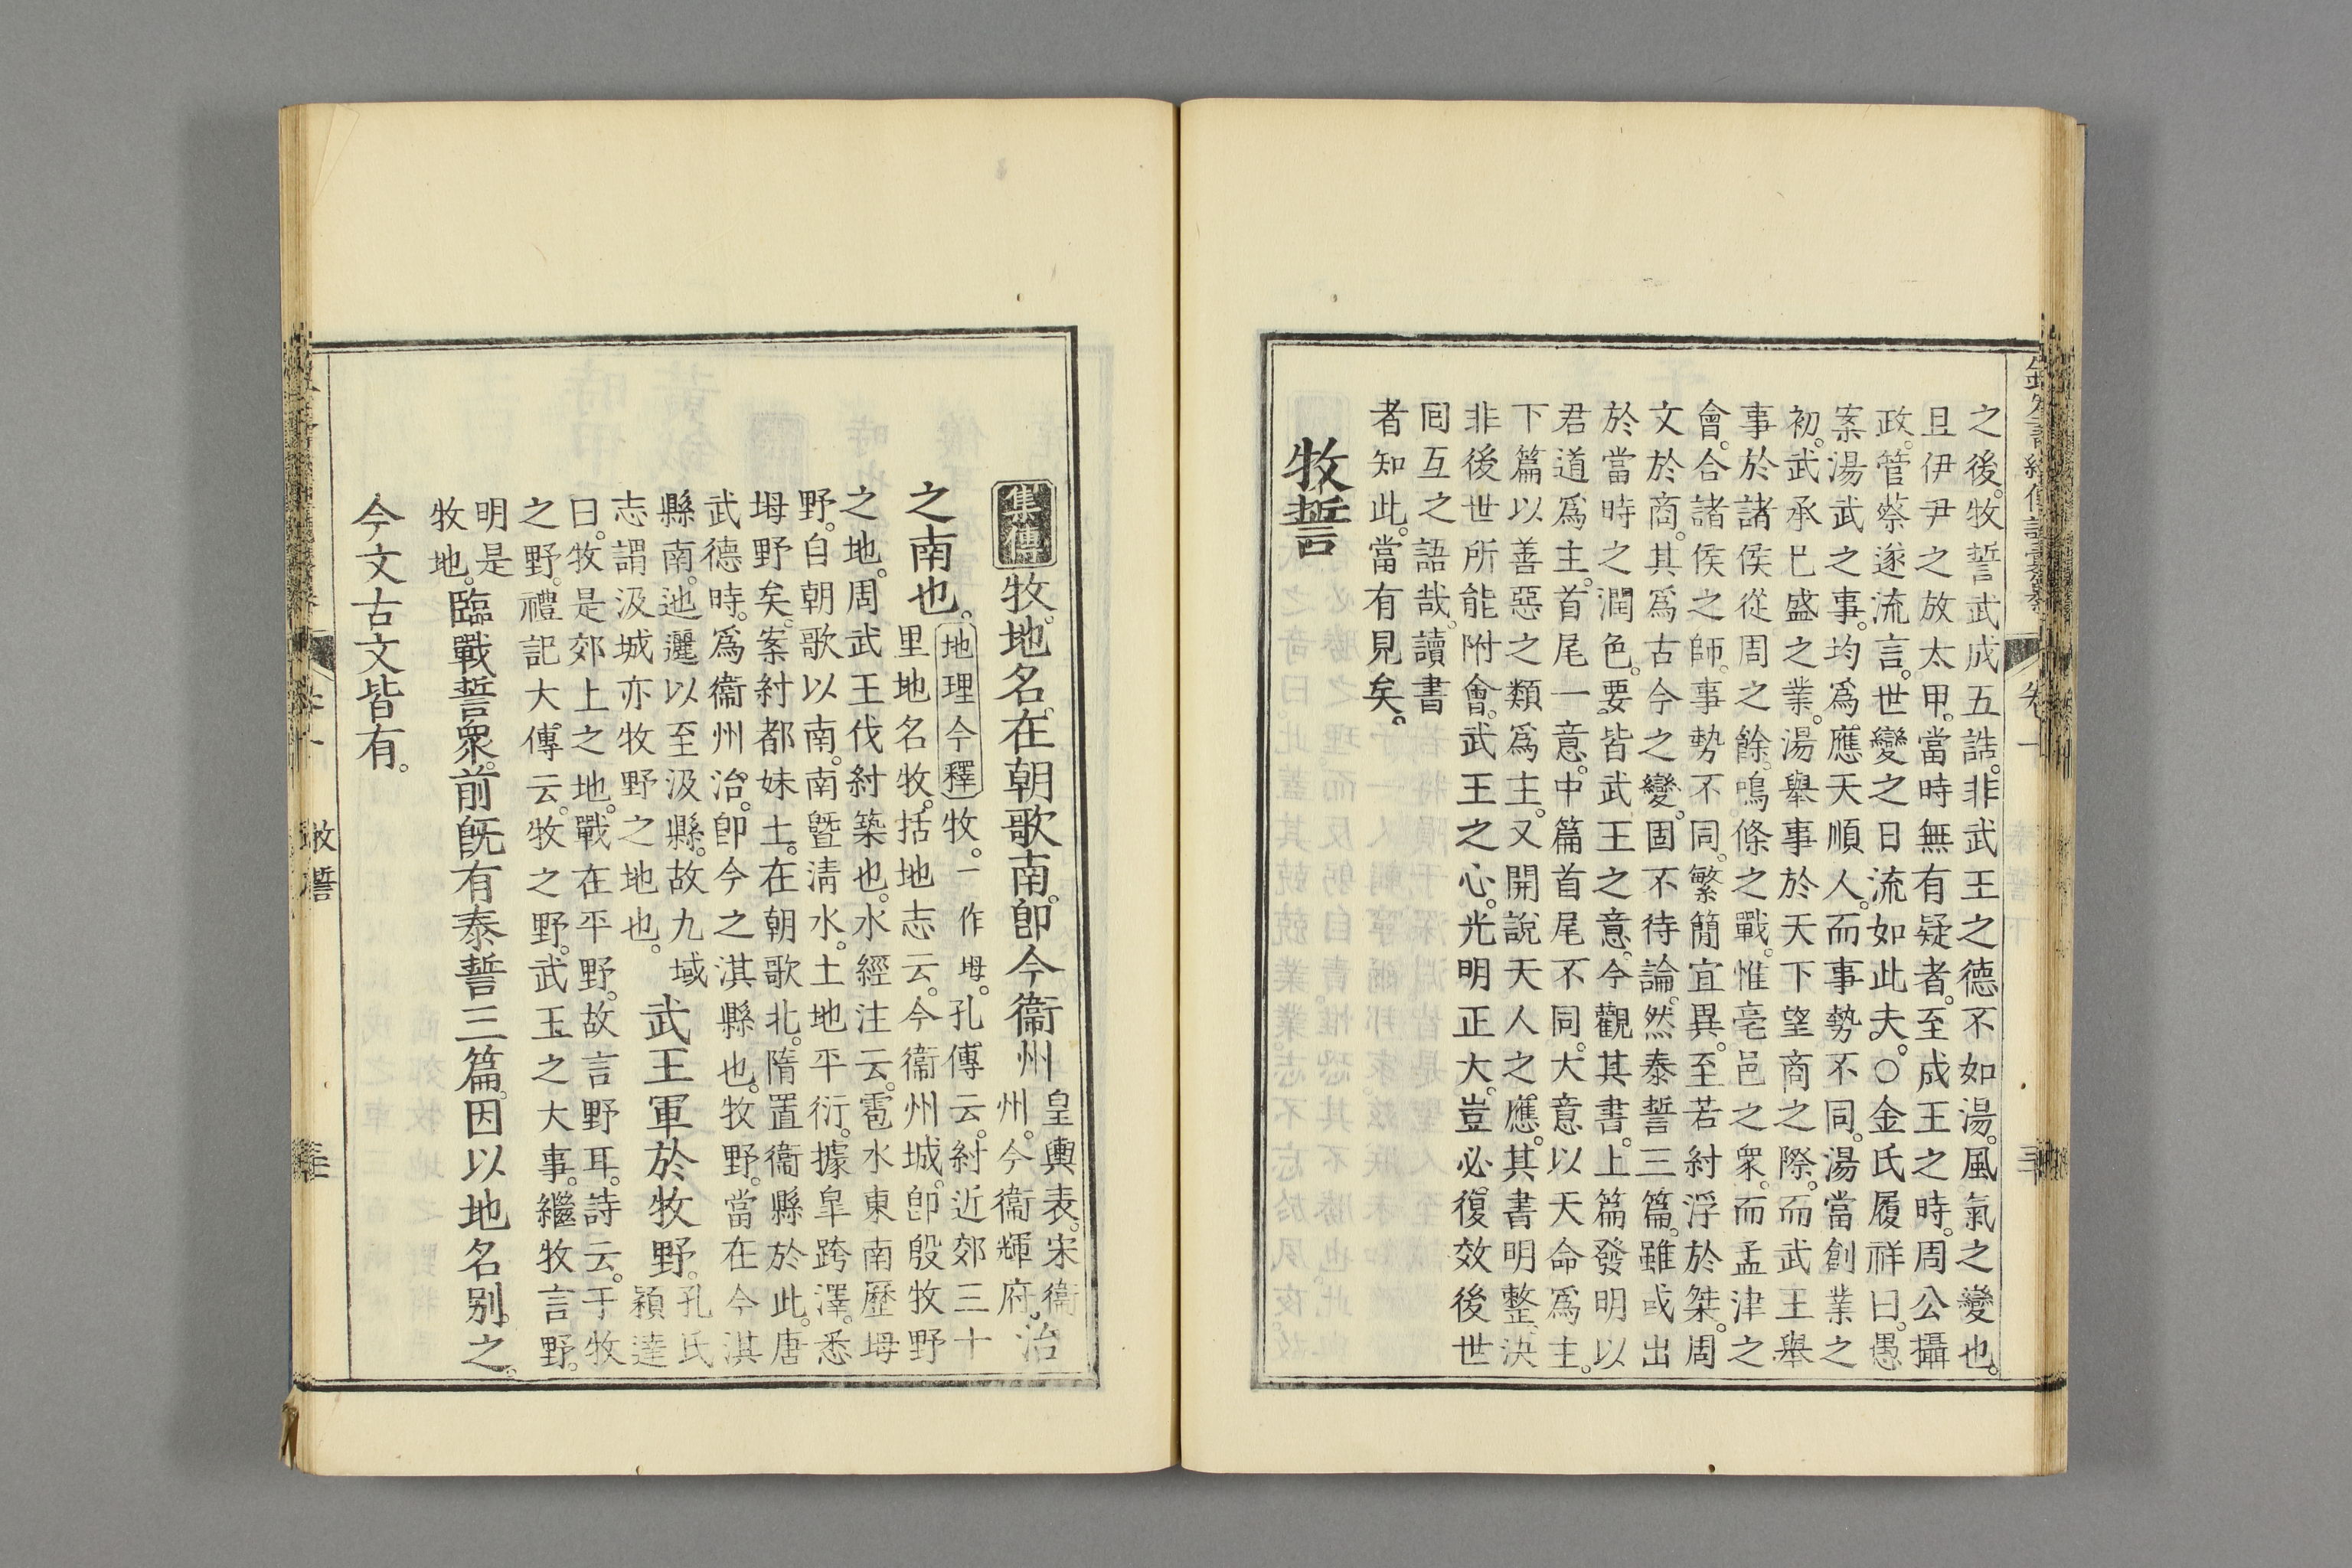 之後。牧誓武成五誥。非武王之德不如湯。風氣之變也。
且伊尹之放太甲。當時無有疑者。至成王之時。周公攝
政。管蔡遂流言。世變之日流如此夫。○金氏履祥曰。愚
案湯武之事。均爲應天順人。而事勢不同。湯當創業之
初。武承已盛之業。湯舉事於天下望商之際。而武王舉
事於諸侯從周之餘。鳴條之戰。惟亳邑之衆。而孟津之
會。合諸侯之師。事勢不同。繁簡宜異。至若紂浮於桀。周
文於商。其爲古今之變。固不待論。然泰誓三篇。雖或出
於當時之潤色。要皆武王之意。今觀其書。上篇發明以
君道爲主。首尾一意。中篇首尾不同。大意以天命爲主。
下篇以善惡之類爲主。又開說天人之應。其書明整。決
非後世所能附會。武王之心。光明正大。豈必復效後世
回互之語哉。讀書
者知此。當有見矣。
牧誓
集傳 牧。地名。在朝歌南。卽今衞州皇輿表。宋衞
州。今衞輝府。治
之南也。地理今釋 牧。一作坶。孔傳云。紂近郊三十
里地名牧。括地志云。今衞州城。卽殷牧野
之地。周武王伐紂築也。水經注云。雹水東南歷坶
野。自朝歌以南。南曁淸水。土地平衍。據皐跨澤。悉
坶野矣。案紂都妹土。在朝歌北。隋置衞縣於此。唐
武德時。爲衞州治。卽今之淇縣也。牧野。當在今淇
縣南。迆邐以至汲縣。故九域
志謂汲城亦牧野之地也。武王軍於牧野。孔氏
穎達
曰。牧是郊上之地。戰在平野。故言野耳。詩云。于牧
之野。禮記大傳云。牧之野。武王之大事。繼牧言野。
明是
牧地。臨戰誓衆。前旣有泰誓三篇。因以地名別之。
今文古文皆有。
牧誓